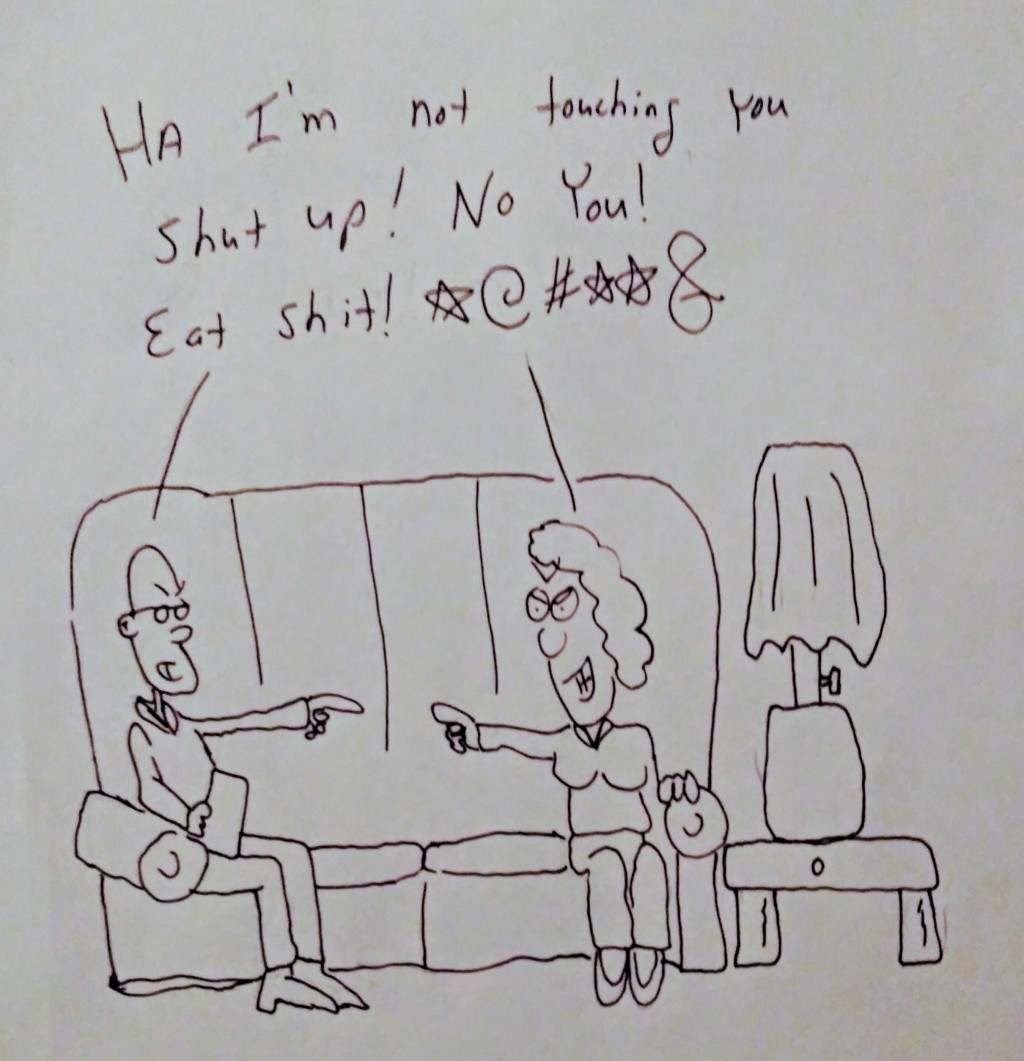 HA I'm not touching you
shut up! No You!
Eat shit! *@#**&